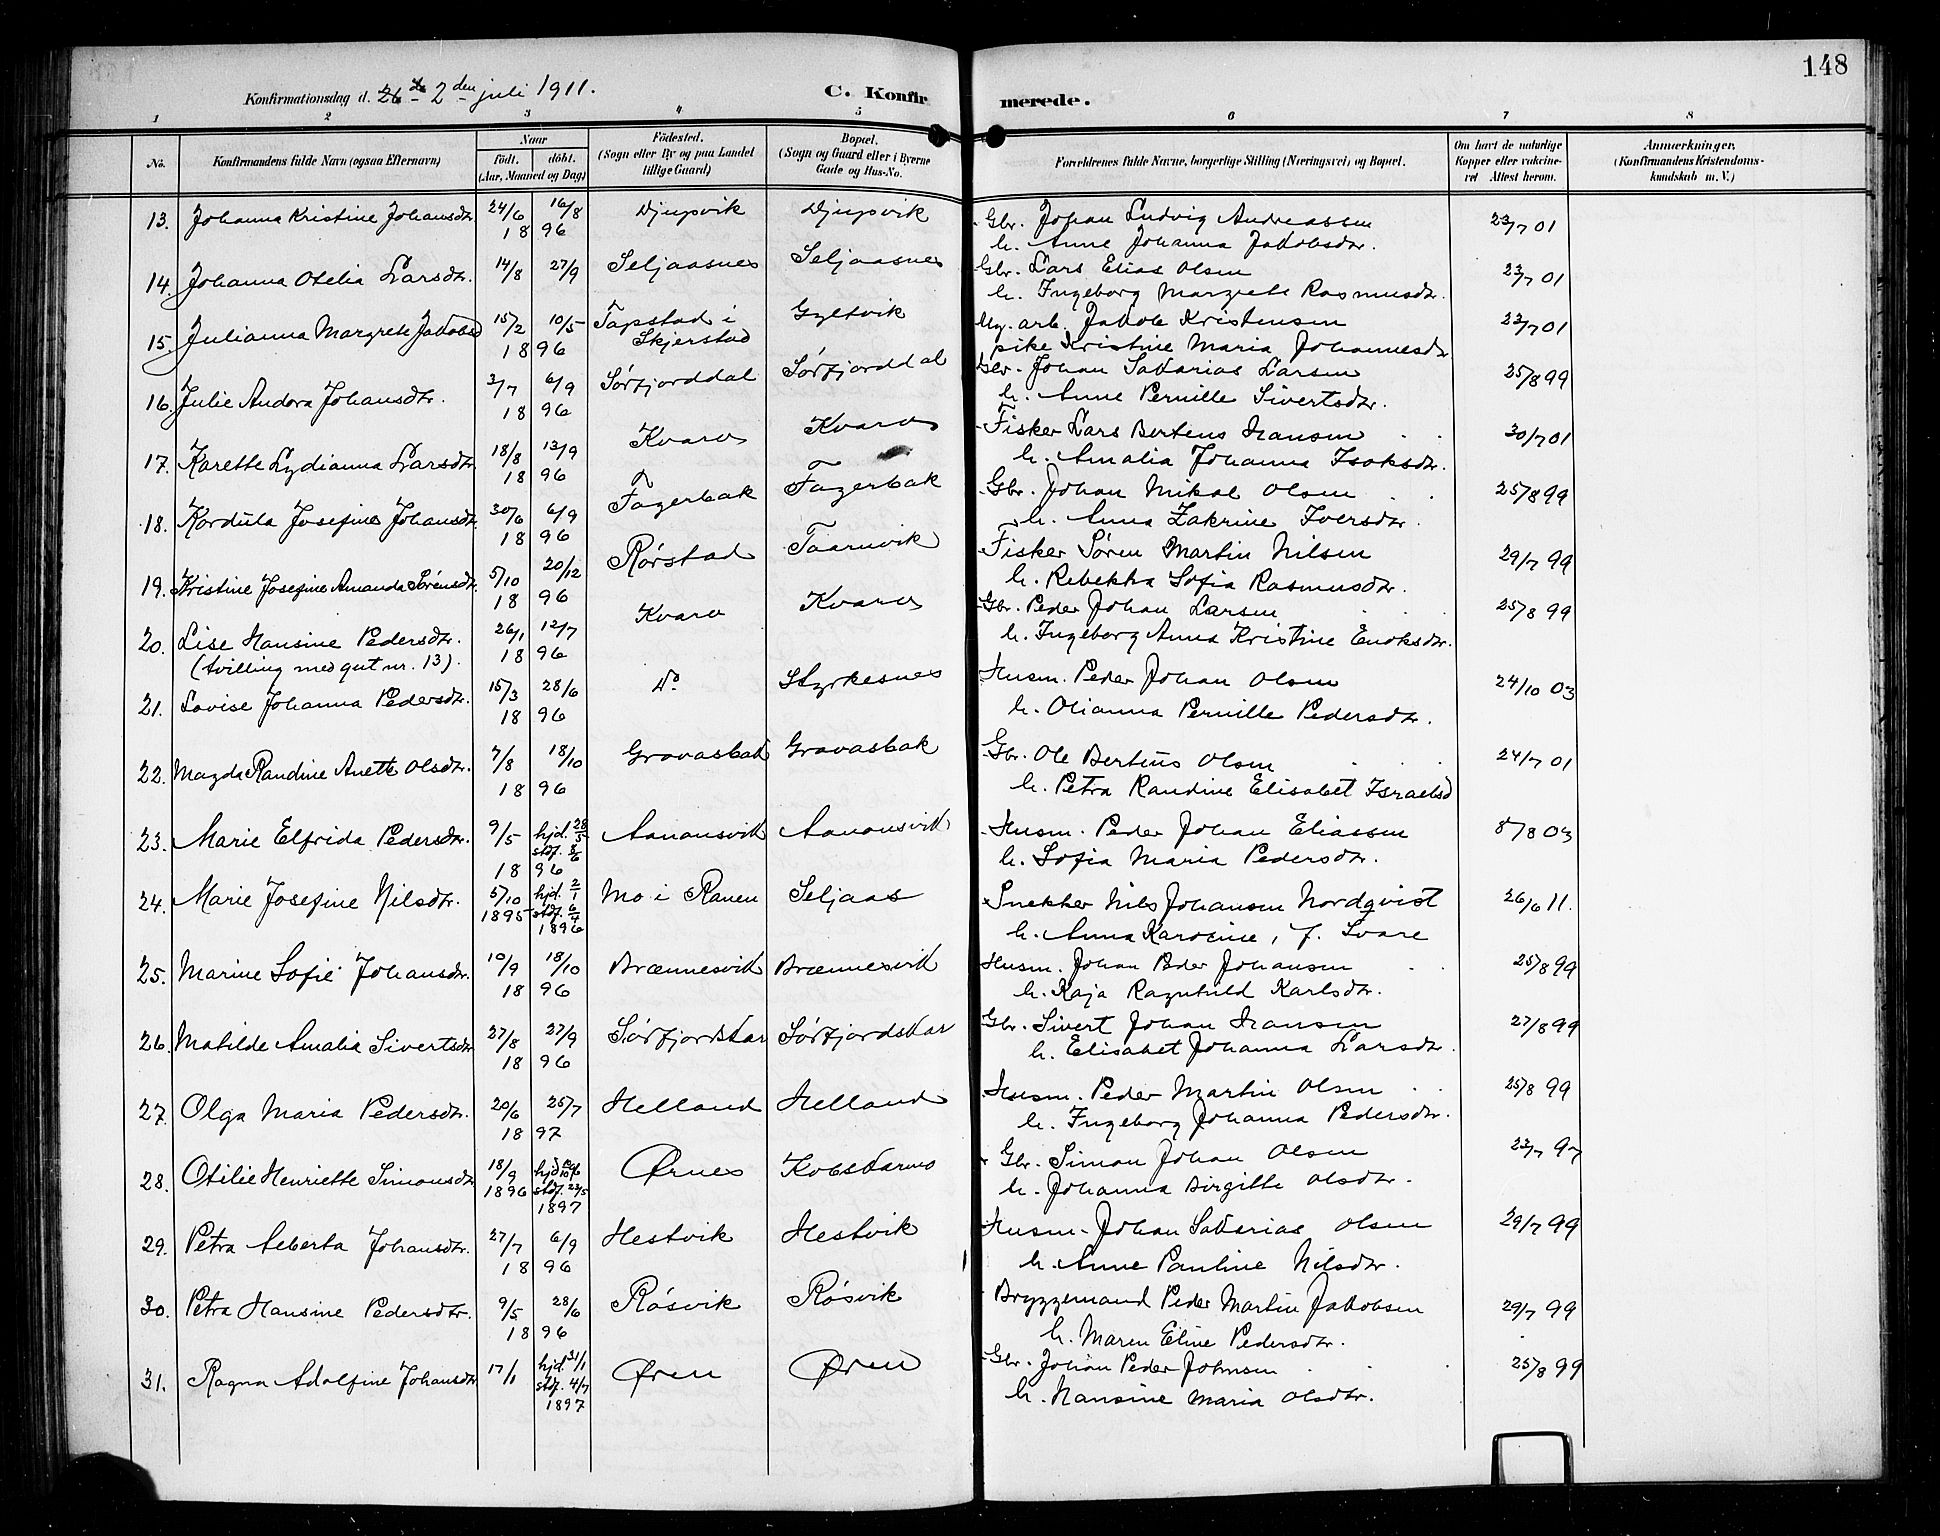 148
Konfirmationsdag d. 26de 2den juli 1911. C. Konfirmerede.
1 2 3 4 5 6 7 8
No. Konfirmandens fulde Navn (ogsaa Efternavn) Naar födt. döbt. (Aar, Maaned og Dag) Födested. (Sogn eller By og paa Landet tillige Gaard) Bopæl. (Sogn og Gaard eller i Byerne Gade og Hus-No. Forældrenes fulde Navne, borgerlige Stilling (Næringsvei) og Bopæl. Om havt de naturlige Kopper eller vakcineret Attest herom. Anmærkninger. (Konfirmandens Kristendomskundskab m. V.)
13. Johanna Kristine Johansdtr. 24/6 16/8 Djupvik Djupvik Gbr. Johan Ludvig Andreassen 23/7 01
18 96 h. Anne Johanna Jakobsdtr.
14. Johanna Otelia Larsdtr. 14/8 27/9 Seljaasnes Seljaasnes Gbr. Lars Elias Olsen 23/7 01
h. Ingeborg Margrete Rasmusdtr.
15. Julianna Margrete Jakobsd 15/2 10/5 Tapstad i Skjerstad Gyltvik Ug. arb. Jakob Kristensen 23/7 01
18 96 pike Kristine Maria Johannesdtr
16. Julie Andora Johansdtr. 3/7 6/9 Sørfjorddal Sørfjorddal Gbr. Johan Sakarias Larsen 25/8 99
18 96 h. Anne Pernille Sivertsdtr.
17. Karette Lydianna Larsdtr. 18/8 13/9 Kvarv Kvarv Fisker Lars Bertens Hansen 30/7 01
18 96 h. Amalia Johanna Isaksdtr.
18. Kordula Josefine Johansdtr 30/6 6/9 Fagerbak Fagerbak Gbr. Johan Mikal Olsen 25/8 99
18 96 h. Anna Zakrine Iversdtr.
19. Kristine Josefine Amanda Sørensdtr. 5/10 20/12 Rørstad Taarnvik Fisker Søren Martin Nilsen 29/7 99
18 96 h. Rebekka Sofia Rasmusdtr.
20. Lise Hansine Pedersdtr. 26/1 12/7 Kvarv Kvarv Gbr. Peder Johan Larsen 25/8 99
(tvilling med gut nr. 13). 18 96 h. Ingeborg Anna Kristine Enoksdtr.
21. Lovise Johanna Pedersdtr. 15/3 28/6 Do Styrkesnes Husm. Peder Johan Olsen 24/10 03
18 96 h. Olianna Pernille Pedersdtr.
22. Magda Randine Anette Olsdtr. 7/8 18/10 Gravasbak Gravasbak Gbr. Ole Bertius Olsen 24/7 01
18 96 h. Petra Randine Elisabet Israelsd
23. Marie Elfrida Pedersdtr. 9/5 hjd. 28/5 stdf. 8/6 Aanonsvik Aanonsvik Husm. Peder Johan Eliassen 8/8 03
18 96 h. Sofia Maria Pedersdtr.
24. Marie Josefine Nilsdtr. 5/10 hjd. 2/1 Mo i Ranen Seljaas Snekker Nils Johansen Nordqvist 26/6 11.
1895 stdf. 6/4 1896 h. Anna Karoline, f. Svare
25. Marine Sofie Johansdtr. 10/9 18/10 Brænnesvik Brænnesvik Husm. Johan Peder Johansen 25/8 99
18 96 h. Kaja Ragnhild Karlsdtr.
26. Matilde Amalia Sivertsdtr 27/8 27/9 Sørfjordskar Sørfjordskar Gbr. Sivert Johan Hansen 27/8 99
18 96 h. Elisabet Johanna Larsdtr.
27. Olga Maria Pedersdtr. 20/6 25/7 Helland Helland Husm. Peder Martin Olsen 25/8 99
18 97 h. Ingeborg Johanna Pedersdtr.
28. Otilie Henriette Simonsdtr 18/9 hjd. Ørnes Kobskarmo Gbr. Simon Johan Olsen 23/7 97
1896 stdf. 23/5 1897 h. Johanna Birgitte Olsdtr.
29. Petra Alberta Johansdtr. 27/7 6/9 Hestvik Hestvik Husm. Johan Sakarias Olsen 29/7 99
18 96 h. Anne Pauline Nilsdtr.
30. Petra Hansine Pedersdtr. 9/5 28/6 Røsvik Røsvik Bryggemand Peder Martin Jakobsen 29/7 99
18 96 h. Maren Eline Pedersdtr.
31. Ragna Adolfine Johansdtr 17/1 hjd. 31/1 Øren Øren Gbr. Johan Peder Johnsen 25/8 99
stdf. 4/7 1897 h. Hansine Maria Olsdtr.